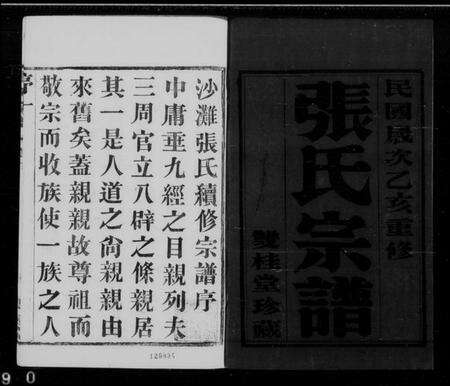 民國歲次乙亥重修
張氏宗譜
雙桂堂珍藏
沙灘張氏續修宗譜序
中庸垂九經之目親列夫
三周官立八辟之條親居
其一是人道之尙親親由
來舊矣蓋親親故尊祖而
敬宗而收族使一族之人
90